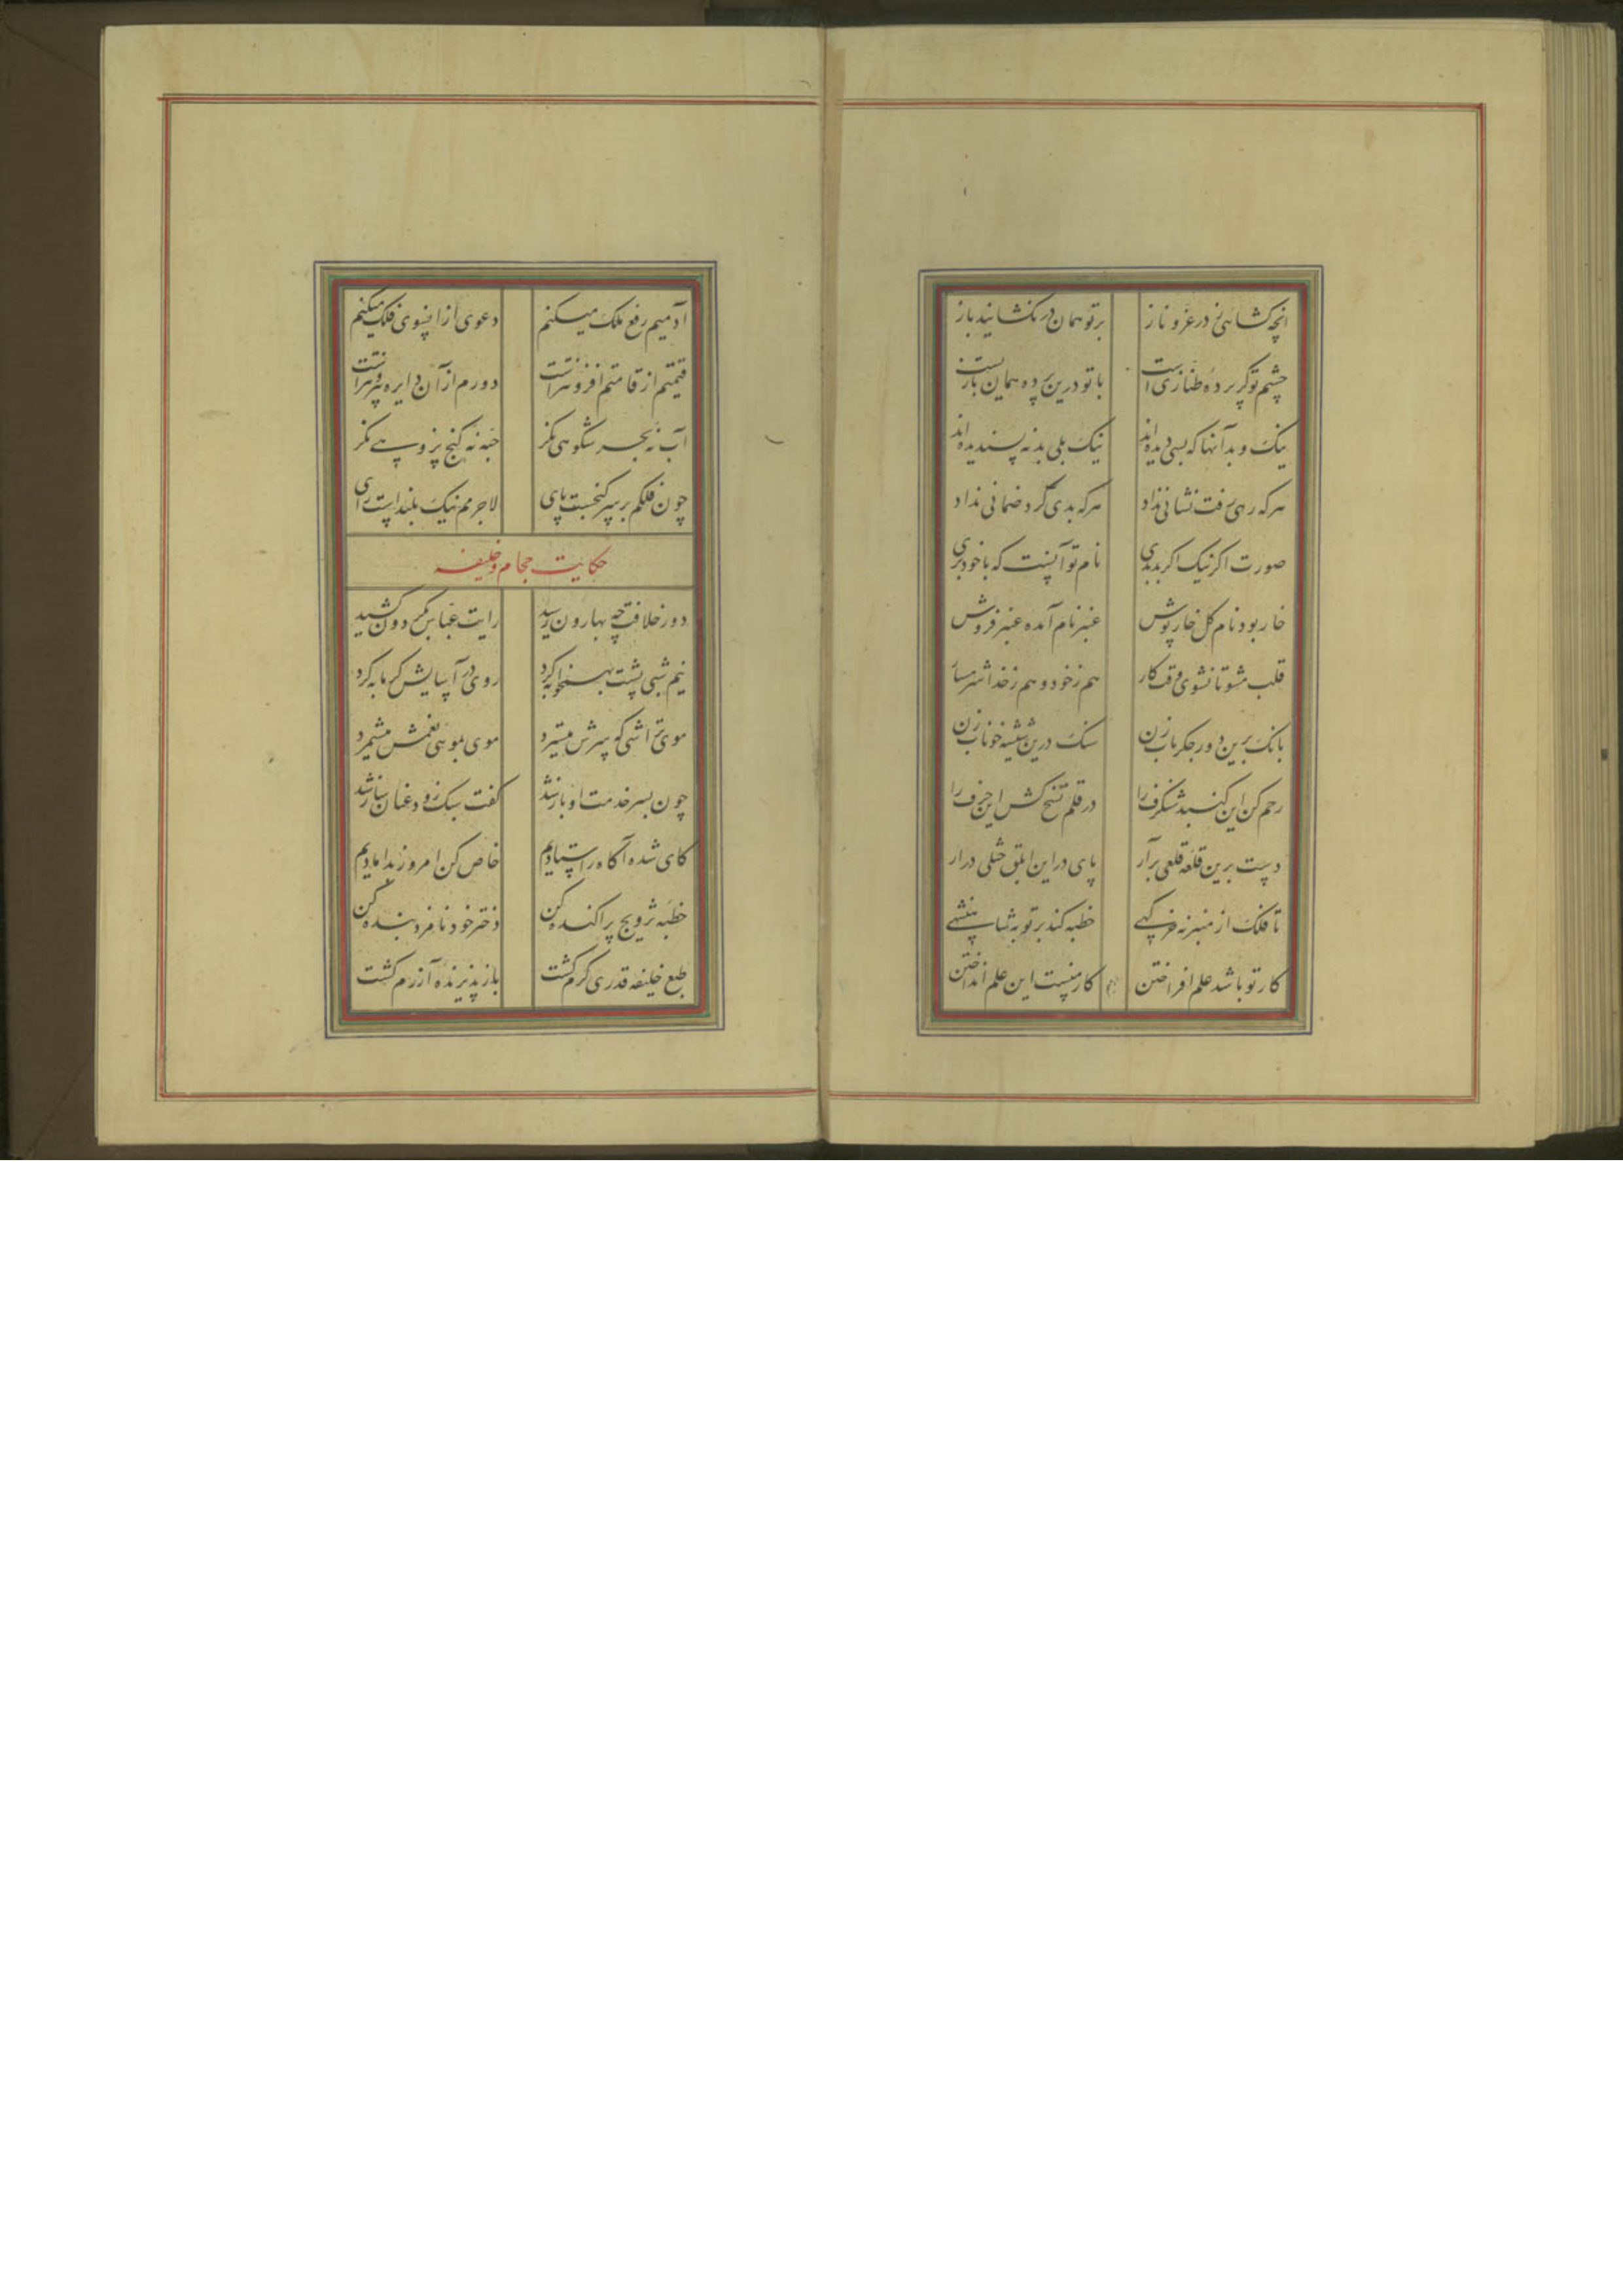 انچه گشائی ز در عز و ناز
بر تو همان در بگشایند باز
چشم تو گر پرده طنازی است
با تو درین پرده همان بازیست
نیک و بد آنها که بسی دیده اند
نیک بلی بد نه پسندیده اند
هر که رهی رفت نشانی نداد
هر که بدی کرد ضمانی نداد
صورت اگر نیک اگر بد بری
نام تو آنست که با خود بری
خار بود نام گل خار پوش
عنبر نام آمده عنبر فروش
قلب مشو تا نشوی وقت کار
هم ز خود و هم ز خدا شرمسار
بانک برین دور جگر تاب زن
سنک درین شیشه خوناب زن
رحم کن این گنبد شنگرف را
در قلم نسخ کش این حرف را
دست برین قلعه قلعی برآر
پای در این ابلق ختلی درار
تا فلک از منبر نه خرگهی
خطبه کند بر تو به شاهنشهی
کار تو باشد علم افراختن
کار منست این علم انداختن
آدمیم رفع ملک میکنم
دعوی از انسوی فلک میکنم
قیمتم از قامتم افزونتر است
دورم از آن دایره بیرونتر است
آب نه بحر شکوهی نگر
حبه نه گنج پژوهی نگر
چون فلکم بر سر گنجست پای
لاجرمم نیک بلند است رای
حکایت حجام و خلیفه
دور خلافت چه بهارون رسید
رایت عباس بگردون کشید
نیم شبی پشت بهمخوابه کرد
روی در آسایش گرمابه کرد
موی تراشی که سرش میسترد
موی بموئی بغمش میشمرد
چون بسر خدمت او باز شد
گفت سبک زود عنان ساز شد
کای شده آگاه ز استادیم
خاص کن امروز بدامادیم
خطبه تزویج پراکنده کن
دختر خود نامزد بنده کن
طبع خلیفه قدری گرم گشت
باز پذیرنده آزرم گشت